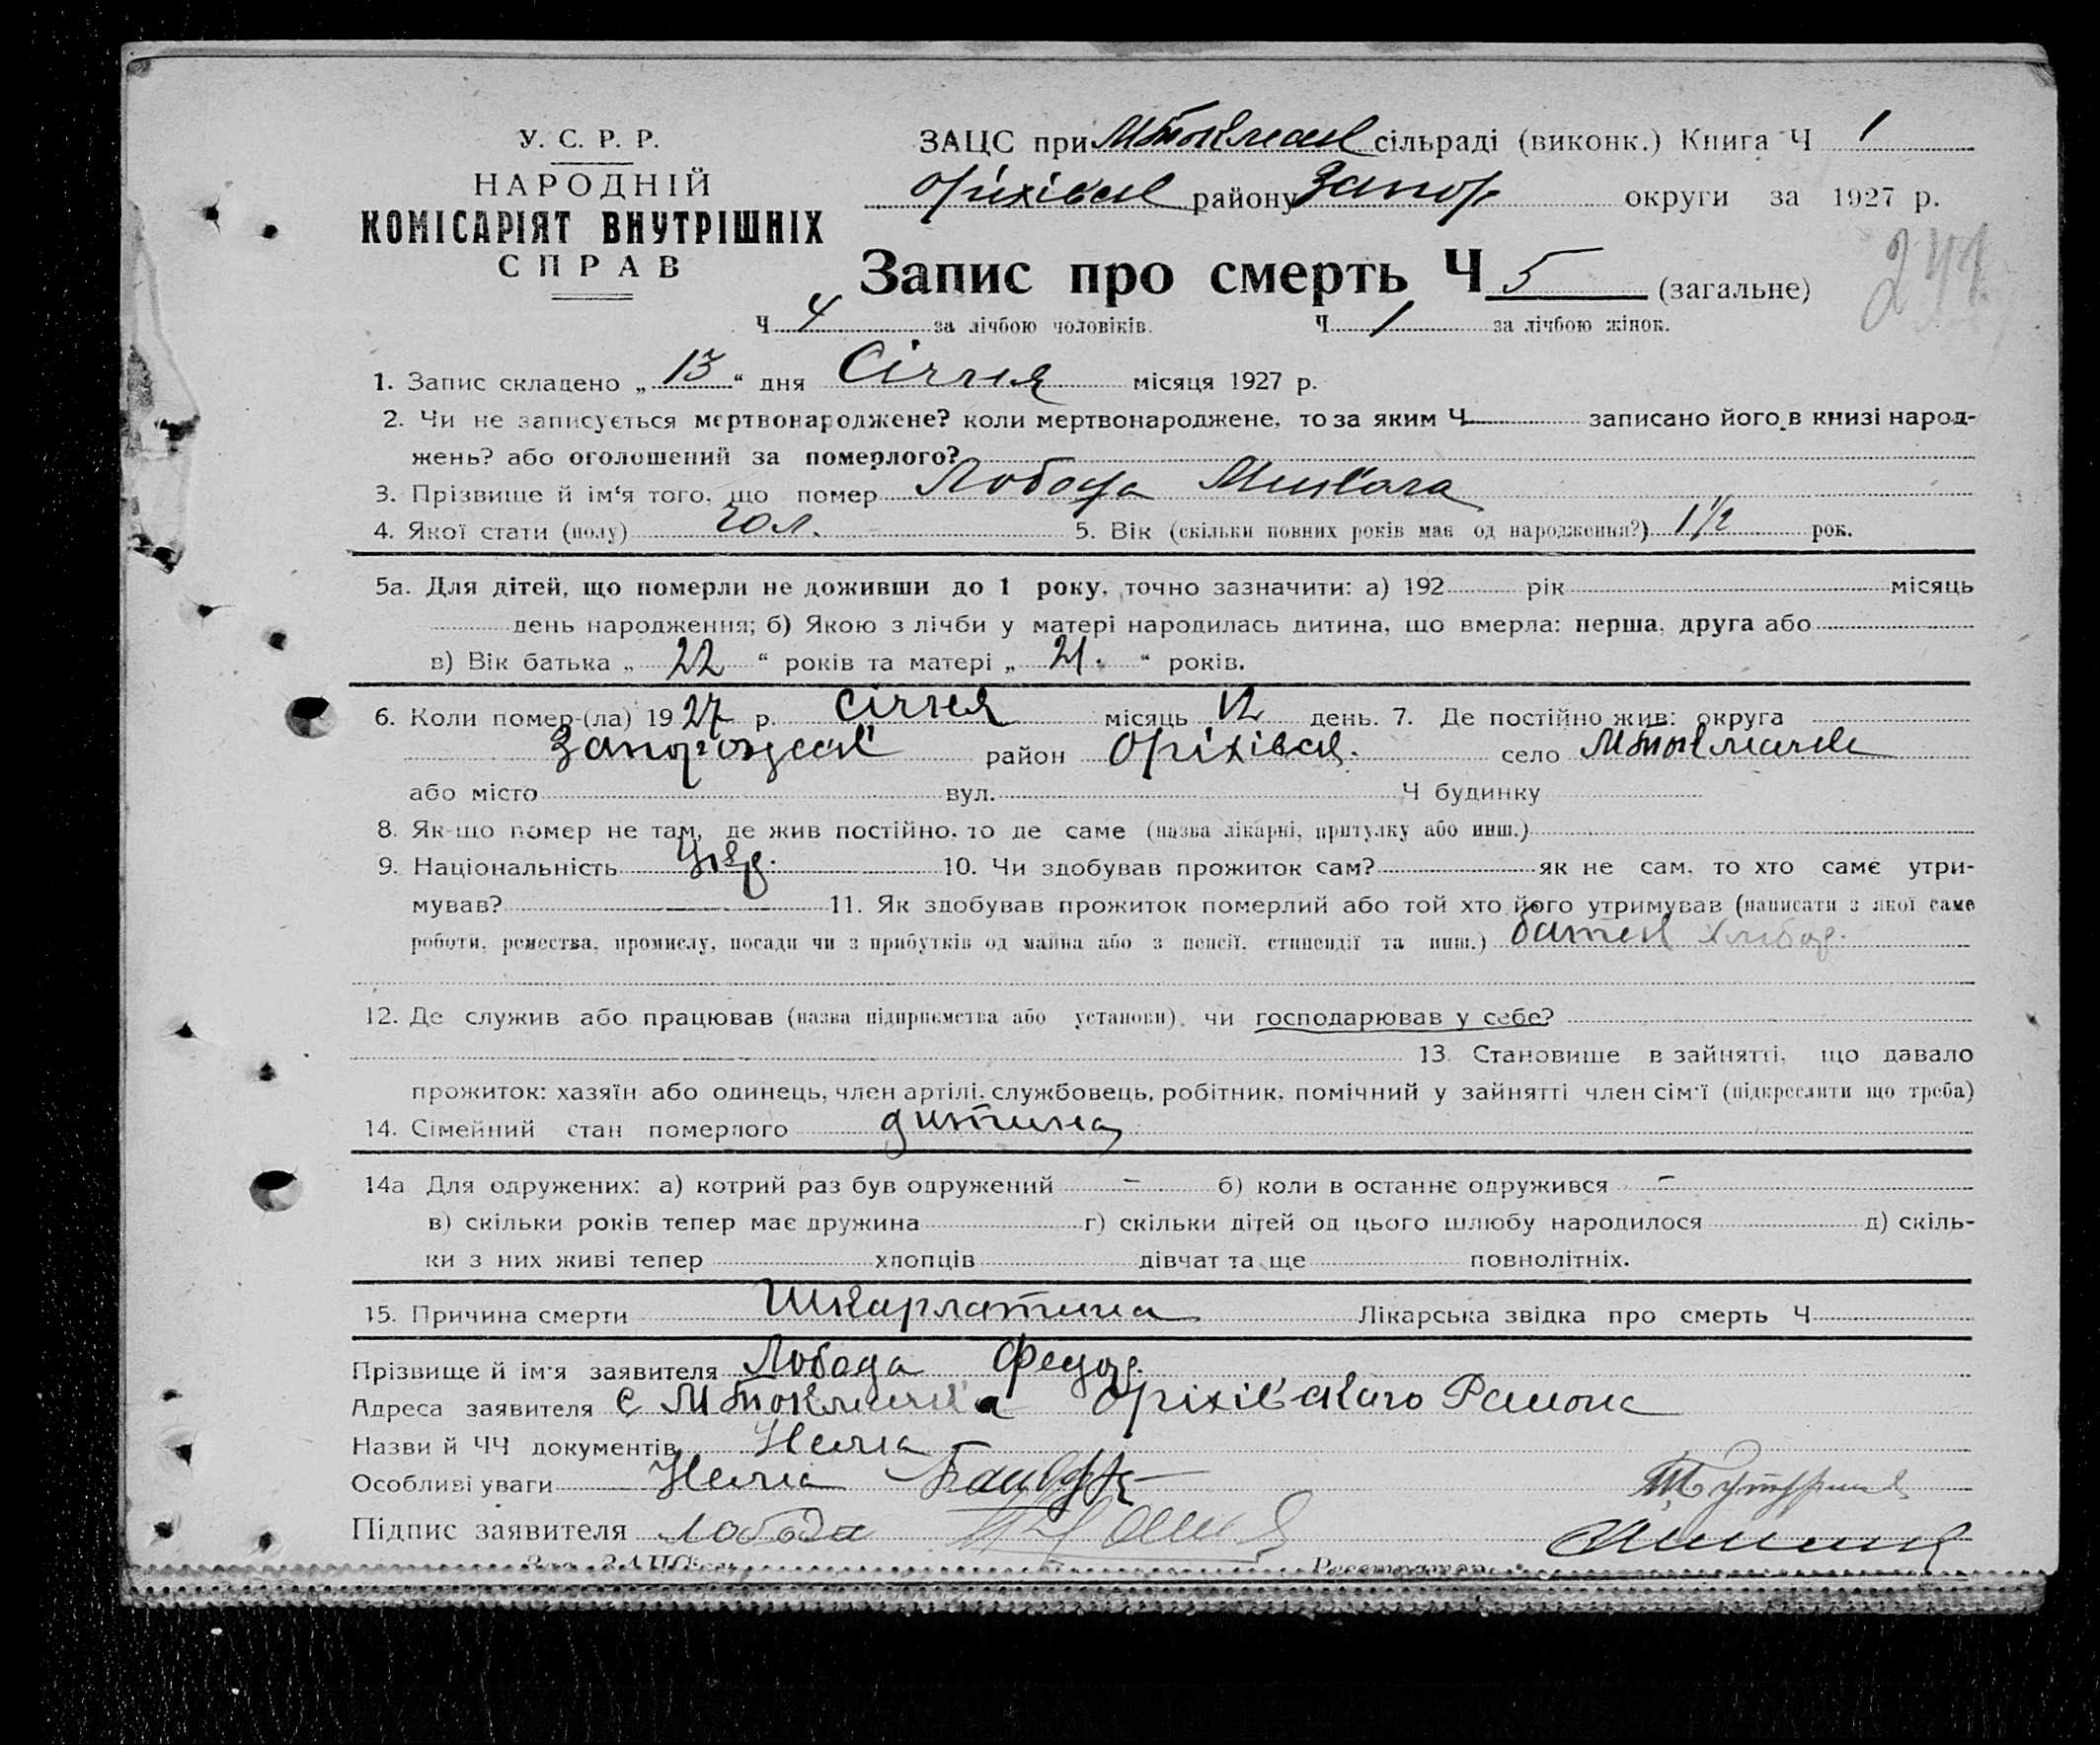 У. С. Р. Р.
НАРОДНІЙ
КОМІСАРІЯТ ВНУТРІШНІХ
СПРАВ
ЗАЦС при М Токмаці сільраді (виконк.) Книга Ч 1
Оріхівськ району Запор округи за 1927 р.
Запис про смерть Ч 5 (загальне)
Ч 4 за лічбою чоловіків. Ч 1 за лічбою жінок.
1. Запис складено „ 13 “ дня Січня місяця 1927 р.
2. Чи не записується мертвонароджене? коли мертвонароджене, то за яким Ч записано його в книзі народ-
жень? або оголошений за померлого?
3. Прізвище й ім‘я того, що помер Лобода Микола
4. Якої стати (полу) Чол. 5. Вік (скільки повних років має од народження?) 1 1/2 рок.
5а. Для дітей, що померли не доживши до 1 року, точно зазначити: а) 192 рік місяць
день народження; б) Якою з лічби у матері народилась дитина, що вмерла: перша, друга або
в) Вік батька „ 22 “ років та матері „ 21. “ років.
6. Коли помер-(ла) 1927 р. Січня місяць 12 день. 7. Де постійно жив: округа
Запорозськ район Оріхівськ. село М Токмачка
або місто вул. Ч будинку
8. Як-що помер не там, де жив постійно, то де саме (назва лікарні, притулку або инш.)
9. Національність Укр. 10. Чи здобував прожиток сам? як не сам, то хто саме утри-
мував? 11. Як здобував прожиток померлий або той хто його утримував (написати з якої саме
роботи, ремества, промислу, посади чи з прибутків од майна або з пенсії, стипендії та инш.) батьк хлибор.
12. Де служив або працював (назва підприємства або установи), чи господарював у себе?
13. Становище в зайнятті, що давало
прожиток: хазяїн або одинець, член артілі, службовець, робітник, помічний у зайнятті член сім‘ї (підкреслити що треба)
14. Сімейний стан померлого дитина
14а Для одружених: а) котрий раз був одружений - б) коли в останнє одружився -
в) скільки років тепер має дружина г) скільки дітей од цього шлюбу народилося д) скіль-
ки з них живі тепер хлопців дівчат та ще повнолітніх.
15. Причина смерти Шкарлатина Лікарська звідка про смерть Ч
Прізвище й ім‘я заявителя Лобода Федор.
Адреса заявителя с М Токмачка Оріхівського Района
Назви й ЧЧ документів Нема
Особливі уваги Нема
Підпис заявителя Лобода
Зав. ЗАЦСом Реєстратор